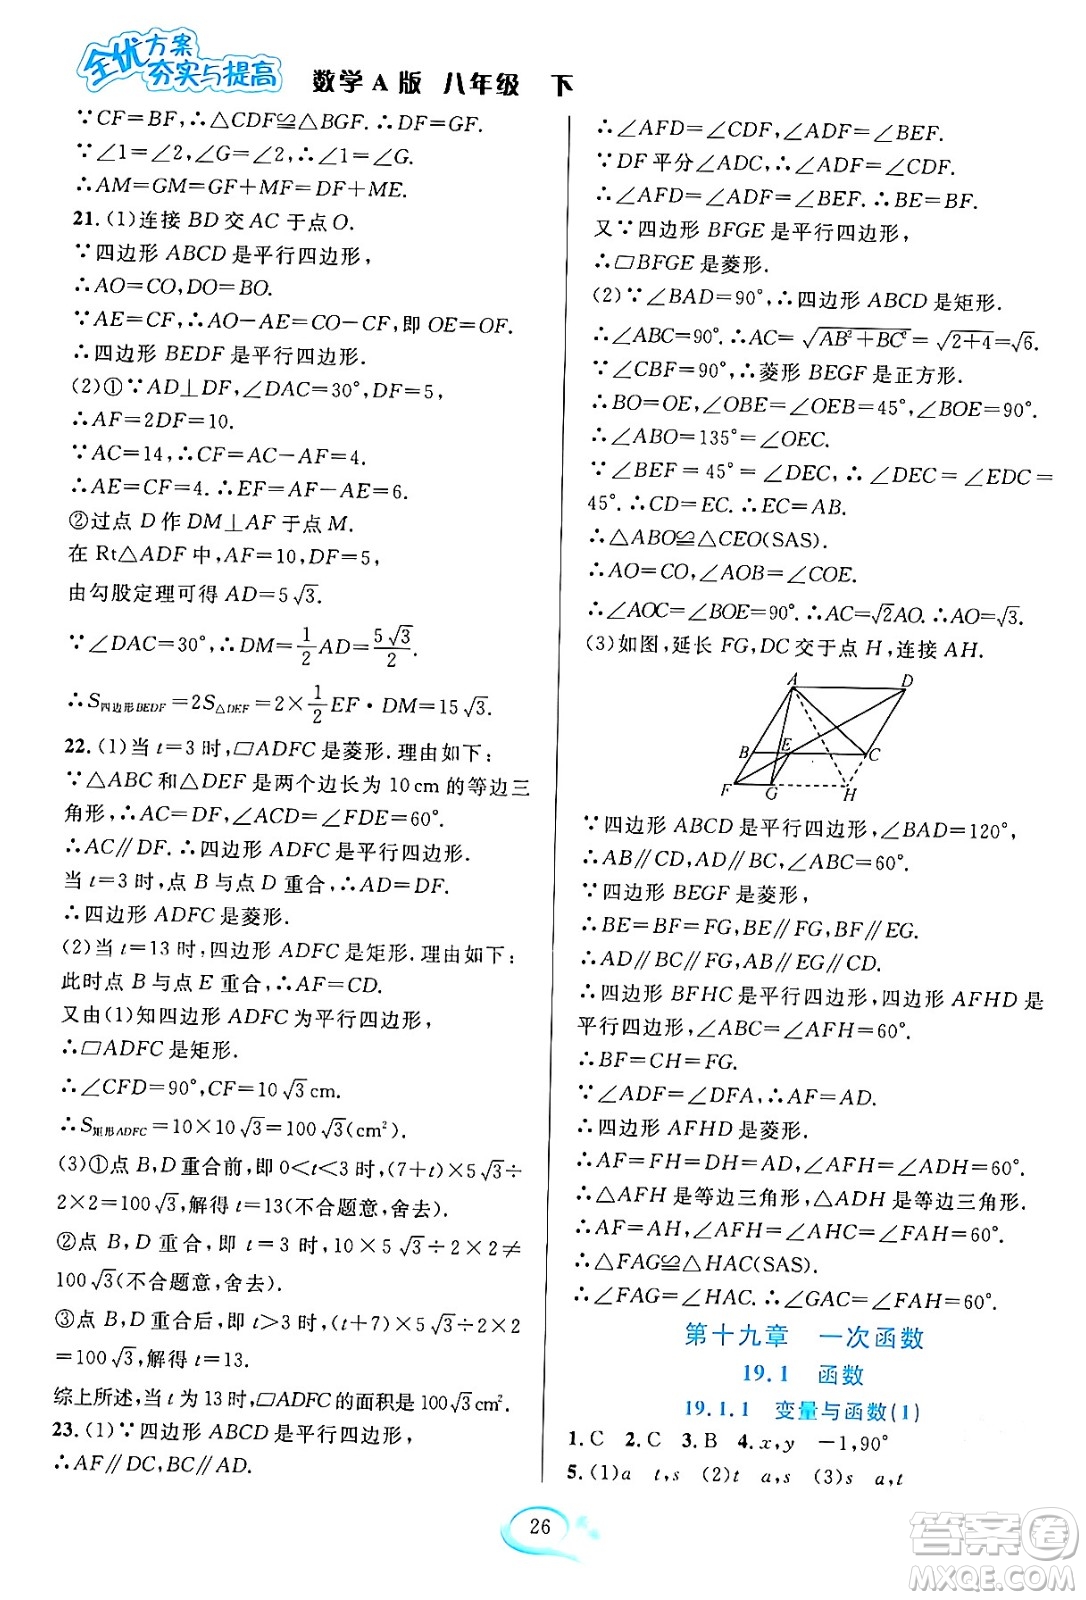 全优方案
夯实与提高
数学A版 八年级 下
∵CF=BF,∴△CDF≌△BGF.∴DF=GF.
∵∠1=∠2,∠G=∠2,∴∠1=∠G.
∴AM=GM=GF+MF=DF+ME.
21.(1)连接 BD 交 AC 于点O.
∵四边形 ABCD 是平行四边形,
∴AO=CO,DO=BO.
∵AE=CF,∴AO-AE=CO-CF,即 OE=OF.
∴四边形 BEDF 是平行四边形.
(2)①∵AD⊥DF,∠DAC=30°,DF=5,
∴AF=2DF=10.
∵AC=14,∴CF=AC-AF=4.
∴AE=CF=4.∴EF=AF-AE=6.
②过点 D 作 DM⊥AF 于点 M.
在 Rt△ADF 中,AF=10,DF=5,
由勾股定理可得 AD=5√3.
∵∠DAC=30°,∴DM=1/2 AD=5√3/2.
∴S四边形BEDF=2S△DEF=2×1/2 EF·DM=15√3.
22.(1)当 t=3 时,▱ADFC 是菱形.理由如下:
∵△ABC 和△DEF 是两个边长为 10 cm 的等边三
角形,∴AC=DF,∠ACD=∠FDE=60°.
∴AC∥DF.∴四边形 ADFC 是平行四边形.
当 t=3 时,点 B 与点 D 重合,∴AD=DF.
∴四边形 ADFC 是菱形.
(2)当 t=13 时,四边形 ADFC 是矩形.理由如下:
此时点 B 与点 E 重合,∴AF=CD.
又由(1)知四边形 ADFC 为平行四边形,
∴▱ADFC 是矩形.
∴∠CFD=90°,CF=10√3 cm.
∴S矩形ADFC=10×10√3=100√3(cm²).
(3)①点 B,D 重合前,即 0<t<3 时,(7+t)×5√3÷
2×2=100√3,解得 t=13(不合题意,舍去).
②点 B,D 重合,即 t=3 时,10×5√3÷2×2≠
100√3(不合题意,舍去).
③点 B,D 重合后,即 t>3 时,(t+7)×5√3÷2×2
=100√3,解得 t=13.
综上所述,当 t 为 13 时,▱ADFC 的面积是100√3 cm².
23.(1)∵四边形 ABCD 是平行四边形,
∴AF∥DC,BC∥AD.
∴∠AFD=∠CDF,∠ADF=∠BEF.
∵DF 平分∠ADC,∴∠ADF=∠CDF.
∴∠AFD=∠ADF=∠BEF.∴BE=BF.
又∵四边形 BFGE 是平行四边形,
∴▱BFGE 是菱形.
(2)∵∠BAD=90°,∴四边形 ABCD 是矩形.
∴∠ABC=90°.∴AC=√(AB²+BC²)=√(2+4)=√6.
∵∠CBF=90°,∴菱形 BEGF 是正方形.
∴BO=OE,∠OBE=∠OEB=45°,∠BOE=90°.
∴∠ABO=135°=∠OEC.
∵∠BEF=45°=∠DEC,∴∠DEC=∠EDC=
45°.∴CD=EC.∴EC=AB.
∴△ABO≌△CEO(SAS).
∴AO=CO,∠AOB=∠COE.
∴∠AOC=∠BOE=90°.∴AC=√2AO.∴AO=√3.
(3)如图,延长 FG,DC 交于点 H,连接 AH.
A D
B E C
F G H
∵四边形 ABCD 是平行四边形,∠BAD=120°,
∴AB∥CD,AD∥BC,∠ABC=60°.
∵四边形 BEGF 是菱形,
∴BE=BF=FG,BE∥FG,BF∥EG.
∴AD∥BC∥FG,AB∥EG∥CD.
∴四边形 BFHC 是平行四边形,四边形 AFHD 是
平行四边形,∠ABC=∠AFH=60°.
∴BF=CH=FG.
∵∠ADF=∠DFA,∴AF=AD.
∴四边形 AFHD 是菱形.
∴AF=FH=DH=AD,∠AFH=∠ADH=60°.
∴△AFH 是等边三角形,△ADH 是等边三角形.
∴AF=AH,∠AFH=∠AHC=∠FAH=60°.
∴△FAG≌△HAC(SAS).
∴∠FAG=∠HAC.∴∠GAC=∠FAH=60°.
第十九章 一次函数
19.1 函数
19.1.1 变量与函数(1)
1.C 2.C 3.B 4.x,y -1,90°
5.(1)a t,s (2)t a,s (3)s a,t
26
答案卷
MXQE.COM